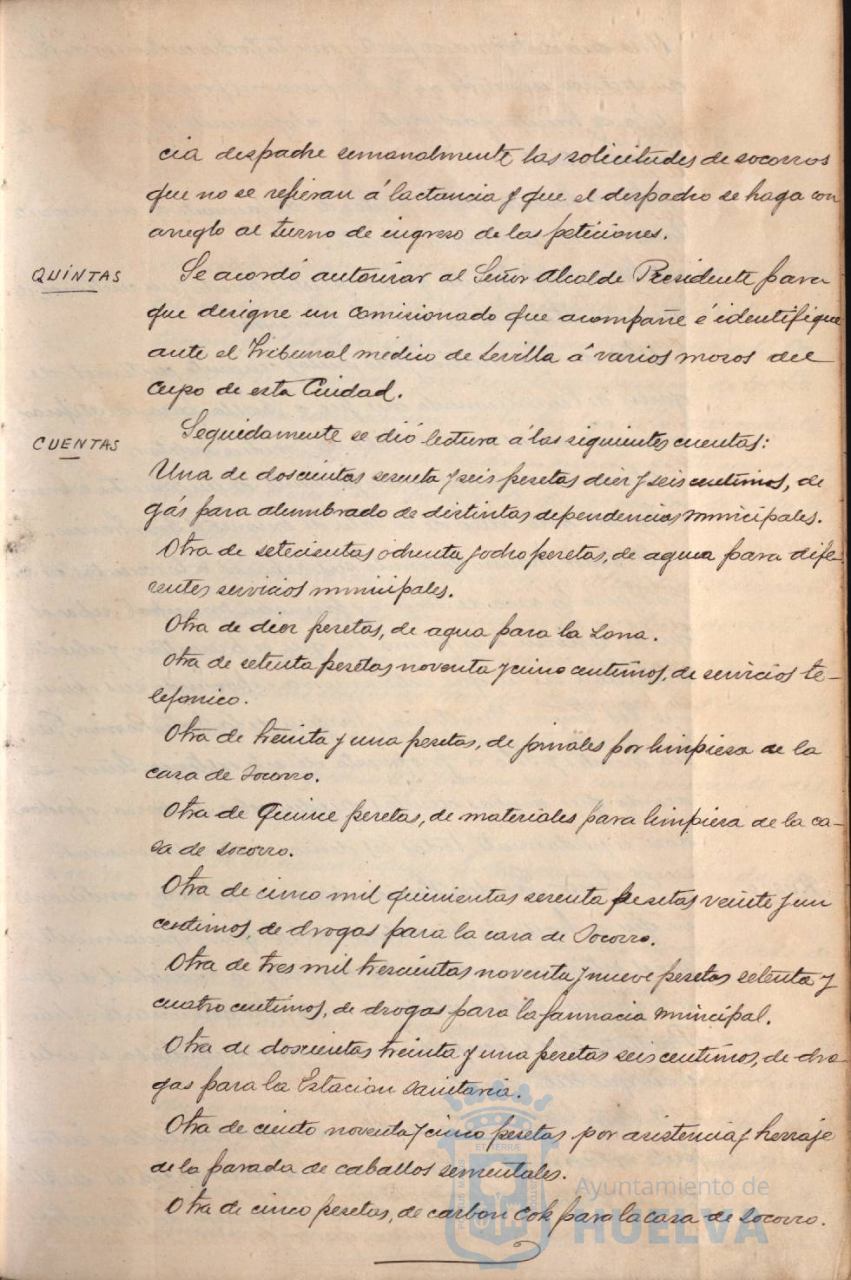 cia despache semanalmente las solicitudes de socorros
que no se refieran á lactancia y que el despacho se haga con
arreglo al turno de ingreso de las peticiones.
QUINTAS
Se acordó autorizar al Señor Alcalde Presidente para
que designe un comisionado que acompañe é identifique
ante el Tribunal médico de Sevilla á varios mozos del
cupo de esta Ciudad.
CUENTAS
Seguidamente se dió lectura á las siguientes cuentas:
Una de doscientas sesenta y seis pesetas diez y seis centimos, de
gás para alumbrado de distintas dependencias municipales.
Otra de setecientas ochenta y ocho pesetas, de agua para dife-
rentes servicios municipales.
Otra de diez pesetas, de agua para la Zona.
Otra de setenta pesetas noventa y cinco centimos, de servicios te-
lefonico.
Otra de treinta y una pesetas, de jornales por limpieza de la
casa de Socorro.
Otra de Quince pesetas, de materiales para limpieza de la ca-
sa de socorro.
Otra de cinco mil quinientas sesenta pesetas veinte y un
centimos, de drogas para la casa de Socorro.
Otra de tres mil trescientas noventa y nueve pesetas setenta y
cuatro centimos, de drogas para la farmacia municipal.
Otra de doscientas treinta y una pesetas seis centimos, de dro-
gas para la Estacion Sanitaria.
Otra de ciento noventa y cinco pesetas por asistencia y herraje
de la parada de caballos sementales.
Otra de cinco pesetas, de carbon Cok para la casa de Socorro.
Ayuntamiento de
HUELVA